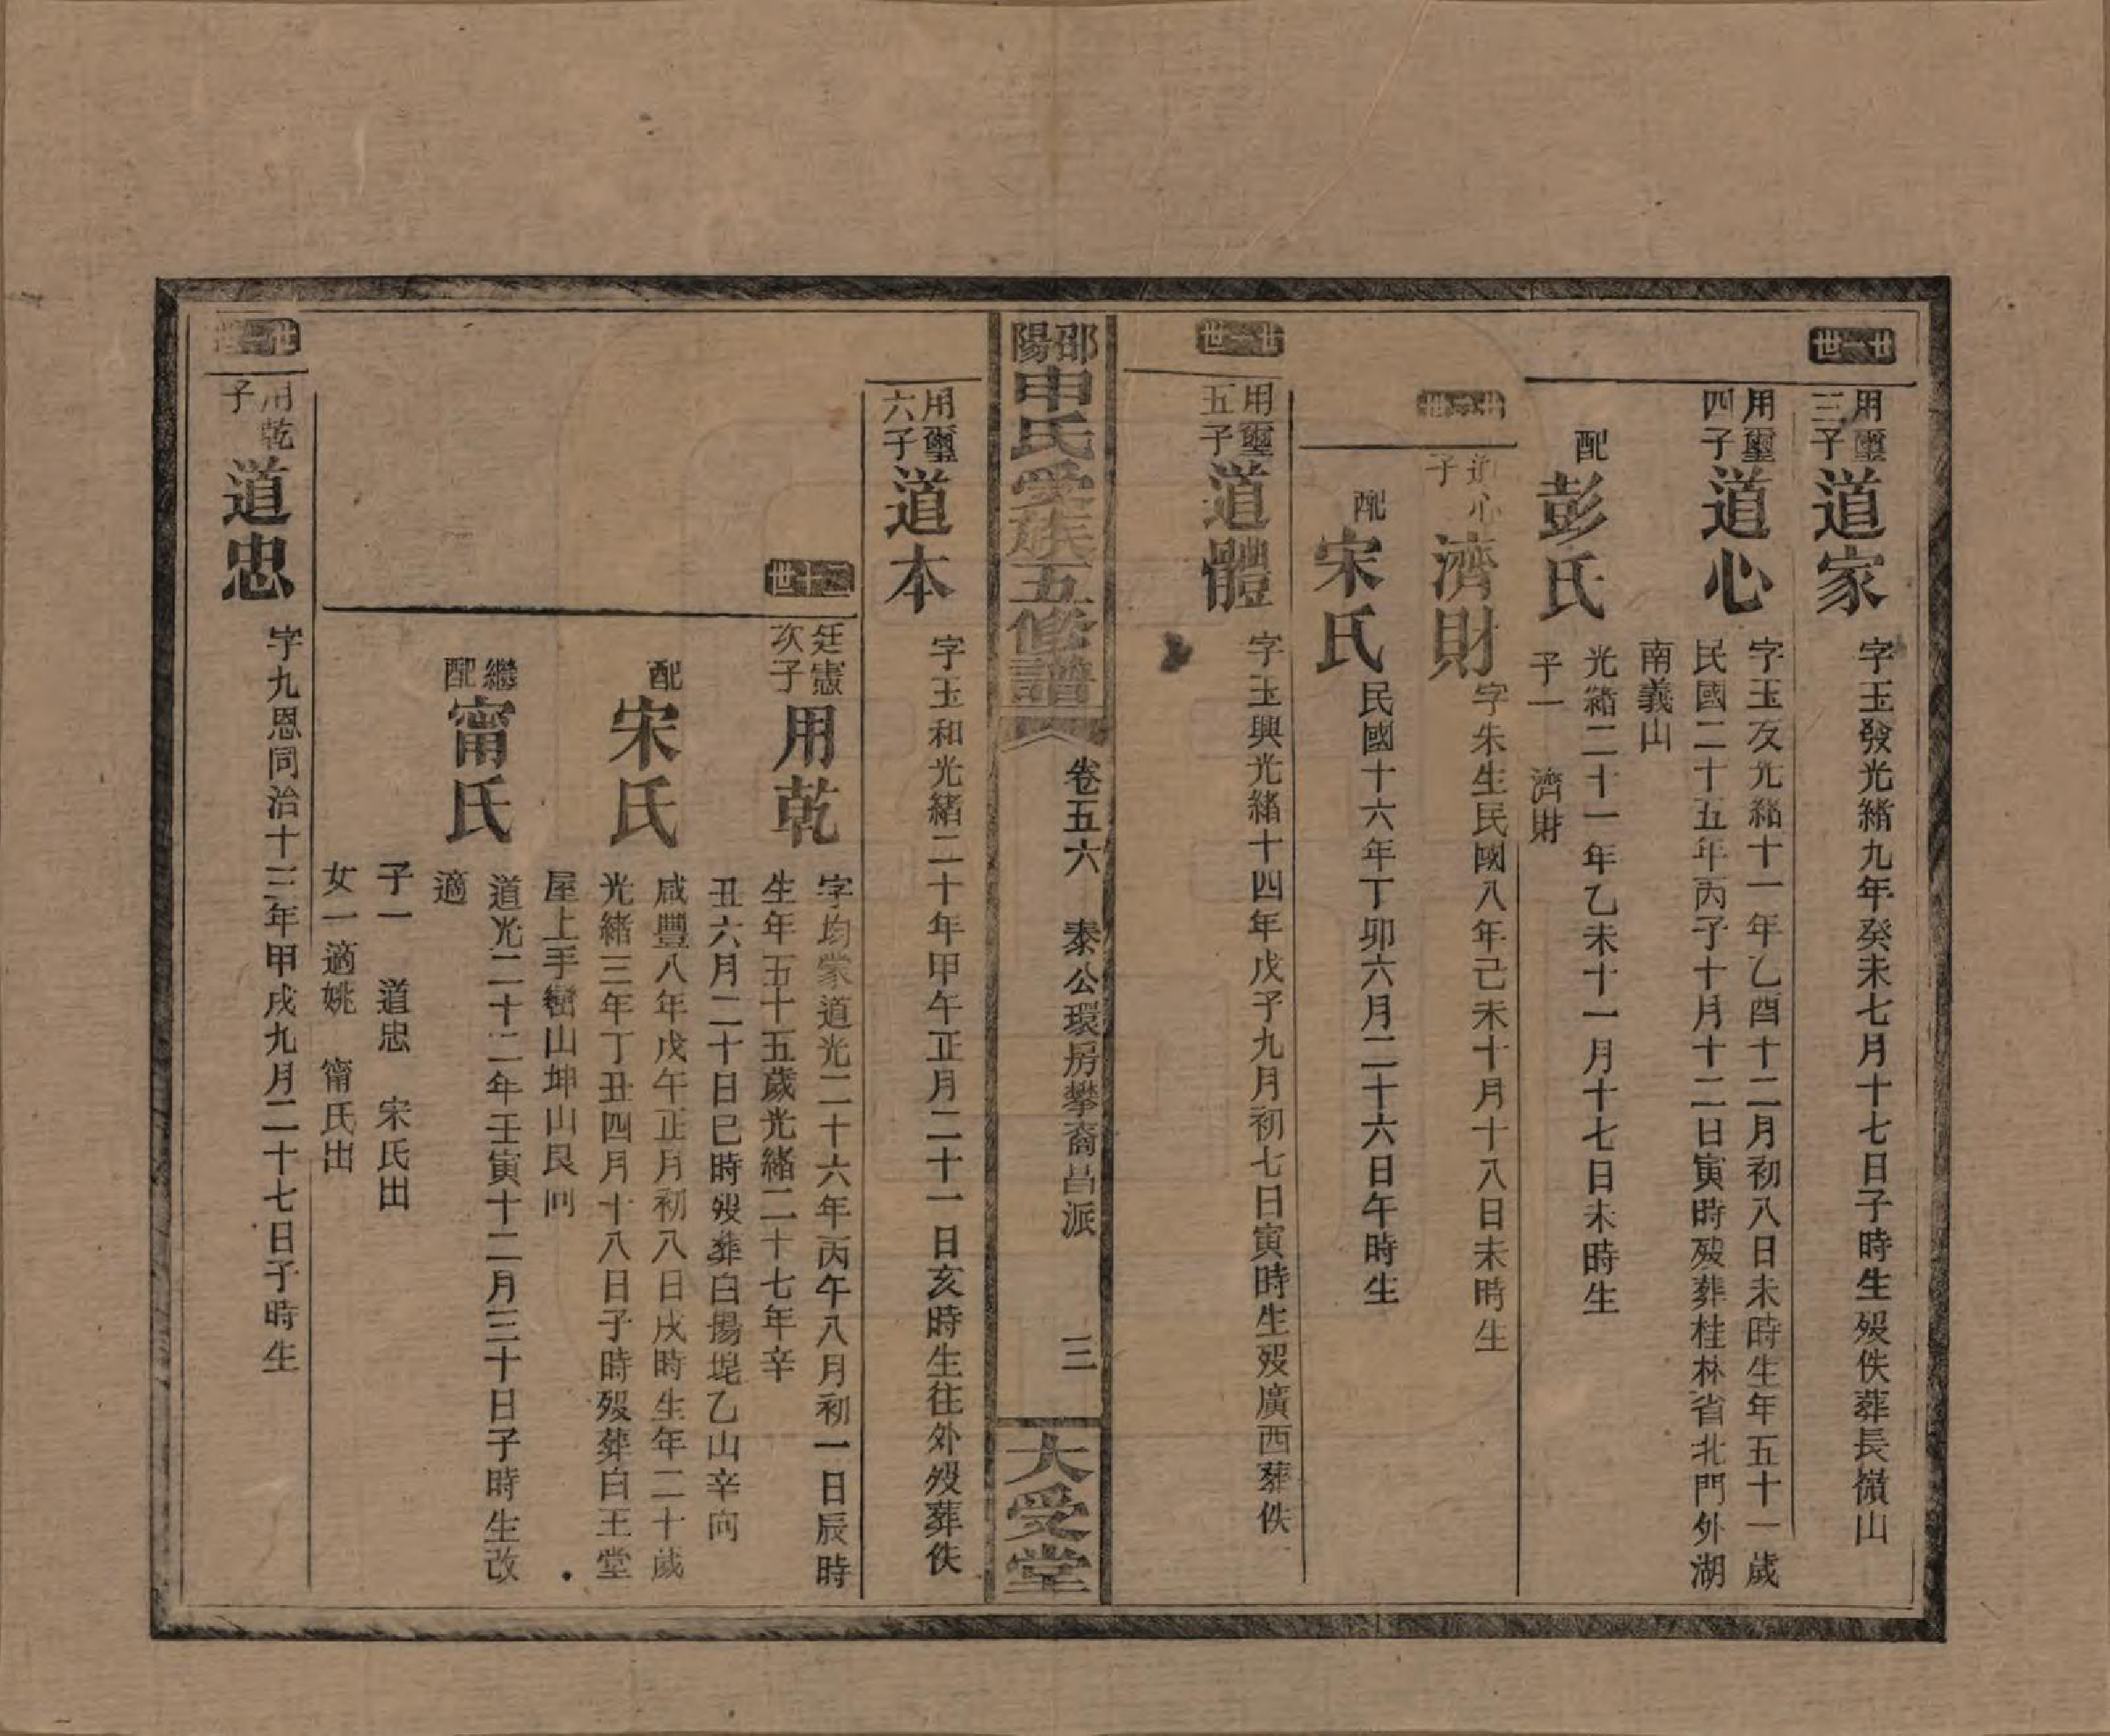 廿一世
用璽三子道家
字玉發光緒九年癸未七月十七日子時生歿佚葬長嶺山
用璽四子道心
字玉友光緒十一年乙酉十二月初八日未時生年五十一歲
民國二十五年丙子十月十二日寅時歿葬桂林省北門外湖
南義山
配彭氏
光緒二十一年乙未十一月十七日未時生
子一 濟財
廿二世
道心子濟財
字朱生民國八年己未十月十八日未時生
配宋氏
民國十六年丁卯六月二十六日午時生
廿一世
用璽五子道體
字玉興光緒十四年戊子九月初七日寅時生歿廣西葬佚
邵陽申氏受族五修譜
卷五六 泰公環房攀裔昌派
三
大受堂
用璽六子道本
字玉和光緒二十年甲午正月二十一日亥時生往外歿葬佚
二十世
廷憲次子用乾
字均蒙道光二十六年丙午八月初一日辰時
生年五十五歲光緒二十七年辛
丑六月二十日巳時歿葬白揚塊乙山辛向
配宋氏
咸豐八年戊午正月初八日戌時生年二十歲
光緒三年丁丑四月十八日子時歿葬白王堂
屋上手巒山坤山艮向
繼配甯氏
道光二十二年壬寅十二月三十日子時生改
適
子一 道忠 宋氏出
女一適姚 甯氏出
廿一世
用乾子道忠
字九恩同治十三年甲戌九月二十七日子時生